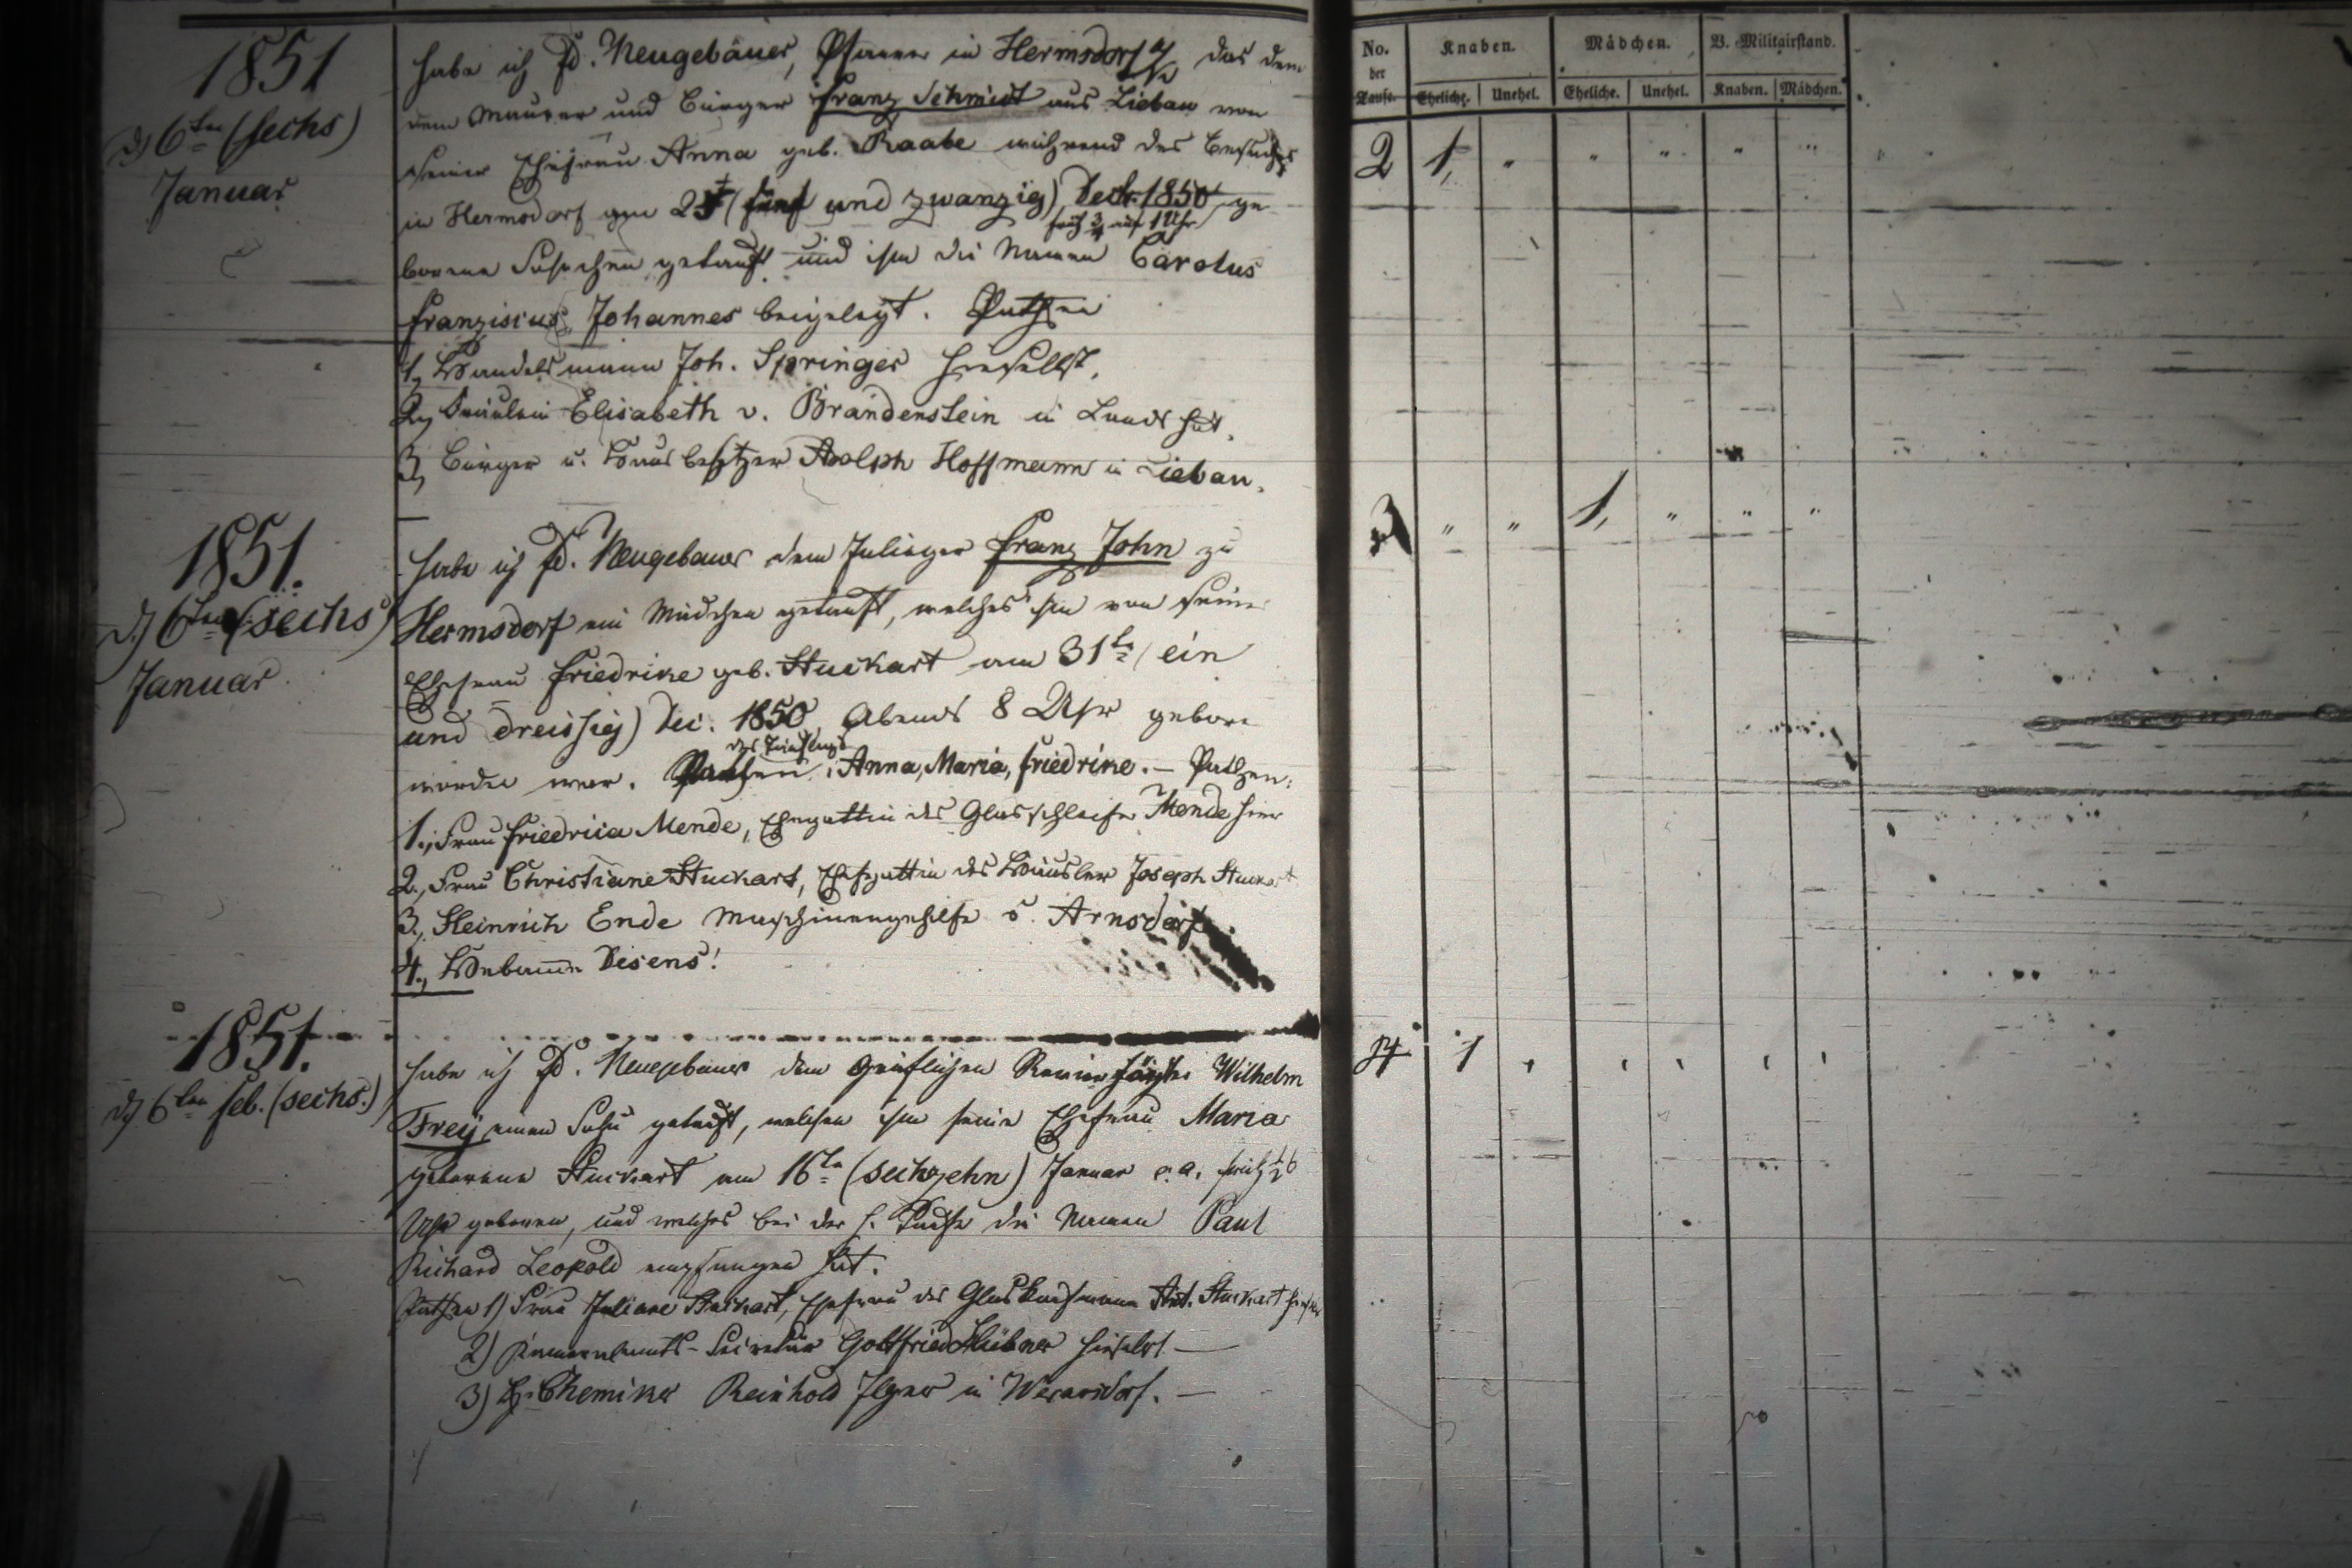 1851
d) 6ten (sechs)
Januar
habe ich Fd. Neugebauer, Pfarrer in Hermsdorf das dem
dem Maurer und Bürger Franz Schmidt aus Liebau von
seiner Ehefrau Anna geb. Raabe während des Besuches
in Hermsdorf am 25t (fünf und zwanzig) Decbr. 1850 ge-
früh 3/4 auf 1 Uhr
borene Söhnchen getauft und ihm die Namen Carolus
Franziscus Johannes beigelegt. Pathen
1, Handelsmann Joh. Springer hieselbst.
2, Fräulein Elisabeth v. Brandenstein in Landshut.
3, Bürger u. Hausbesitzer Adolph Hoffmann in Liebau.
1851.
d) 6ten (sechs)
Januar
habe ich Fd. Neugebauer dem Inlieger Franz John zu
Hermsdorf ein Mädchen getauft, welches ihm von seiner
Ehefrau Friedrike geb. Stuckart am 31ten (ein
und dreissig) Dec. 1850 Abends 8 Uhr geboren
worden war. des Täuflings: Anna, Maria, Friedrike. — Pathen:
1., Frau Friedrica Mende, Ehegattin des Glasschleifer Mende hier
2., Frau Christiane Stuckart, Ehegattin des Häusler Joseph Stuckart
3., Heinrich Ende Maschinengehilfe Arnsdorf
4., Hebamme Disens!
1851.
d) 6ten Feb. (sechs.)
habe ich Fd. Neugebauer dem Gräflichen Revierförster Wilhelm
Frey einen Sohn getauft, welchen ihm seine Ehefrau Maria
geborene Stuckart am 16ten (sechzehn) Januar c. a. früh 1/2 6
Uhr geboren, und welcher bei der h. Taufe die Namen Paul
Richard Leopold empfangen hat.
Pathen 1) Frau Juliane Stuckart, Ehefrau des Glaskaufmann Ant. Stuckart
2) Kameralamts-Secretär Gottfried Hübner hieselbst —
3) H. Chemiker Reinhold Ilgner in Wernersdorf. —
No. der Taufe. Knaben. Mädchen. V. Militairstand.
Eheliche. Unehel. Eheliche. Unehel. Knaben. Mädchen.
2 1, " " " " "
3 " " 1, " " "
4 1 , , , , ,